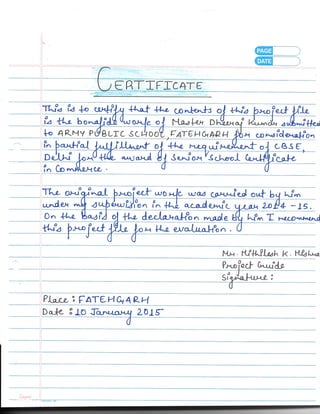 PAGE
DATE
CERTIFICATE
This is to certify that the contents of this project file
is the bonafide work of Master Dheeraj Kundu submitted
to ARMY PUBLIC SCHOOL, FATEHGARH for consideration
in partial fulfillment of the requirement of CBSE,
Delhi for the award of Senior School Certificate
in Commerce.
The original project work was carried out by him
under my supervision in the academic year 2014-15.
On the basis of the declaration made by him I recommend
this project file for the evaluation.
Mr. Mithilesh K. Mishra
Project Guide
Signature:
Place : FATEHGARH
Date : 10 January 2015